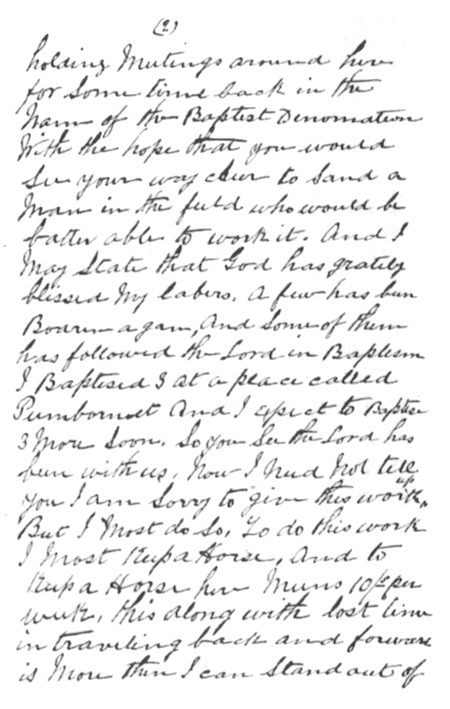 (2)
holding Meetings around here
for some time back in the
Nam of the Baptist Denomation
With the hope that you would
See your way clear to Sand a
Man in the field who would be
batter able to work it. And I
May State that God has grately
blessed My labers. A few has bun
Boarn again, And Some of them
has followed the Lord in Baptism
I Baptised 3 at a place called
And I expect to Baptise
3 More Soon. So you See the Lord has
been with us. Now I Need Not tell
you I am Sorry to give this work up,
But I Most do So, To do this work
I Most Keep a Horse, And to
Keep a Horse here Means 10/- per
week, this along with lost time
in traveling back and forward
is More then I can Stand out of